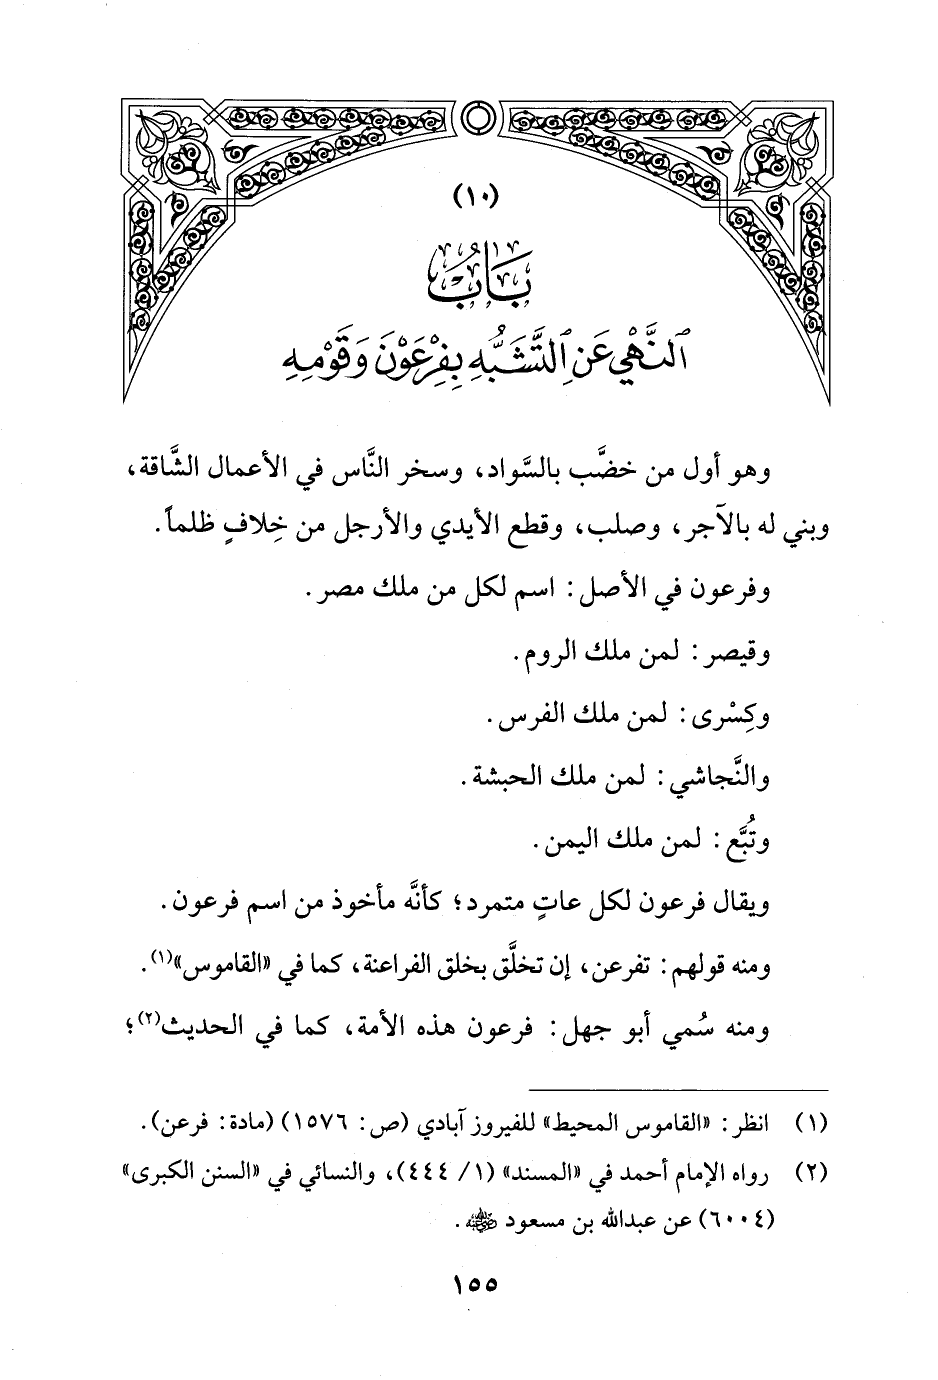 (١٠)
بَابُ
ٱلنَّهْيِ عَنِ ٱلتَّشَبُّهِ بِفِرْعَوْنَ وَقَوْمِهِ
وهو أول من خضَّب بالسَّواد، وسخر النَّاس في الأعمال الشَّاقة،
وبني له بالآجر، وصلب، وقطع الأيدي والأرجل من خِلافٍ ظلماً.
وفرعون في الأصل: اسم لكل من ملك مصر.
وقيصر: لمن ملك الروم.
وكِسْرى: لمن ملك الفرس.
والنَّجاشي: لمن ملك الحبشة.
وتُبَّع: لمن ملك اليمن.
ويقال فرعون لكل عاتٍ متمرد؛ كأنَّه مأخوذ من اسم فرعون.
ومنه قولهم: تفرعن، إن تخلَّق بخلق الفراعنة، كما في «القاموس»(١).
ومنه سُمي أبو جهل: فرعون هذه الأمة، كما في الحديث(٢)؛
(١) انظر: «القاموس المحيط» للفيروز آبادي (ص: ١٥٧٦) (مادة: فرعن).
(٢) رواه الإمام أحمد في «المسند» (١/ ٤٤٤)، والنسائي في «السنن الكبرى»
(٦٠٠٤) عن عبدالله بن مسعود رضي الله عنه.
١٥٥